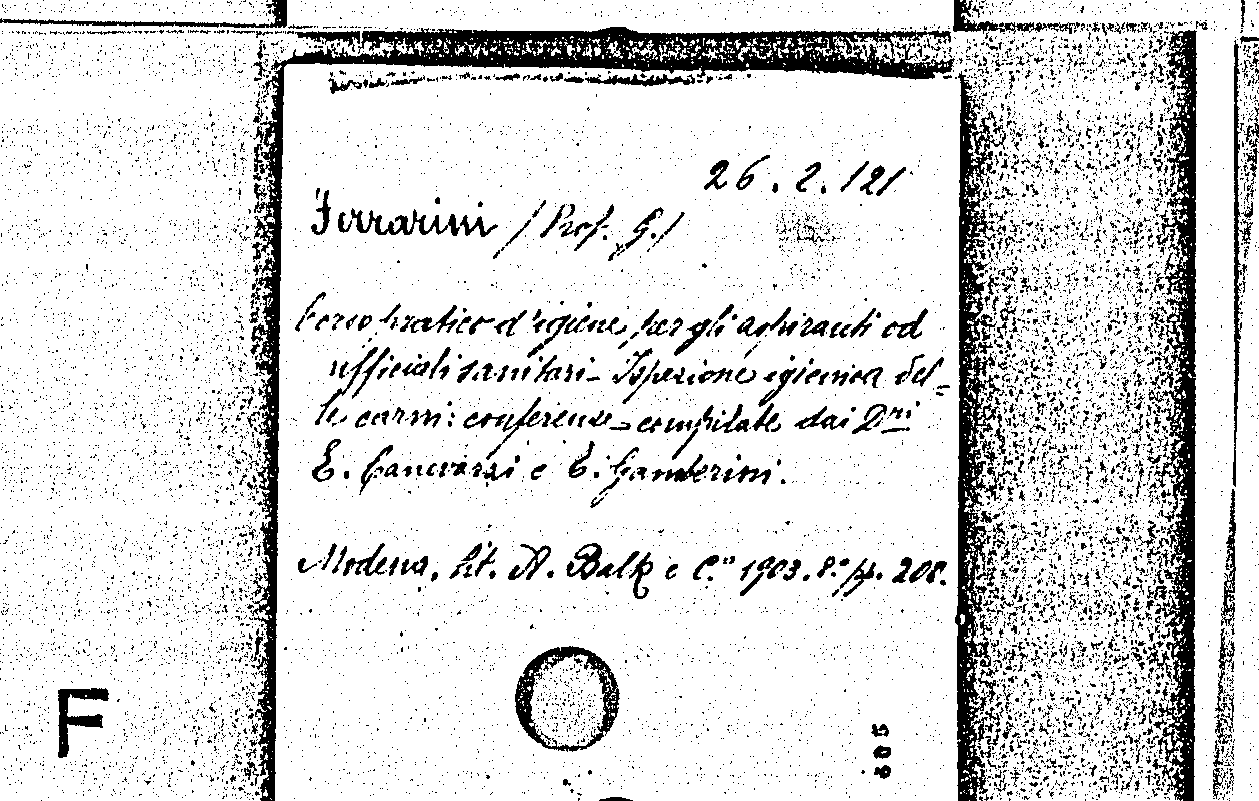 26.2.121
Ferrarini /Prof. G./
Corso pratico d'igiene per gli aspiranti ad
ufficiali sanitari - Ispezione igienica del=
le carni: conferenze - compilate dai Dri
E. e E. Gamberini.
Modena, lit. A. Balk e C.o 1903. 8.o pp. 208.
F
605